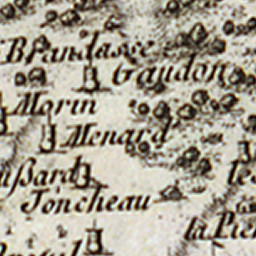 Brandasge
Gaudon
Morin
Menard
ussard
Joncheau
la Pier